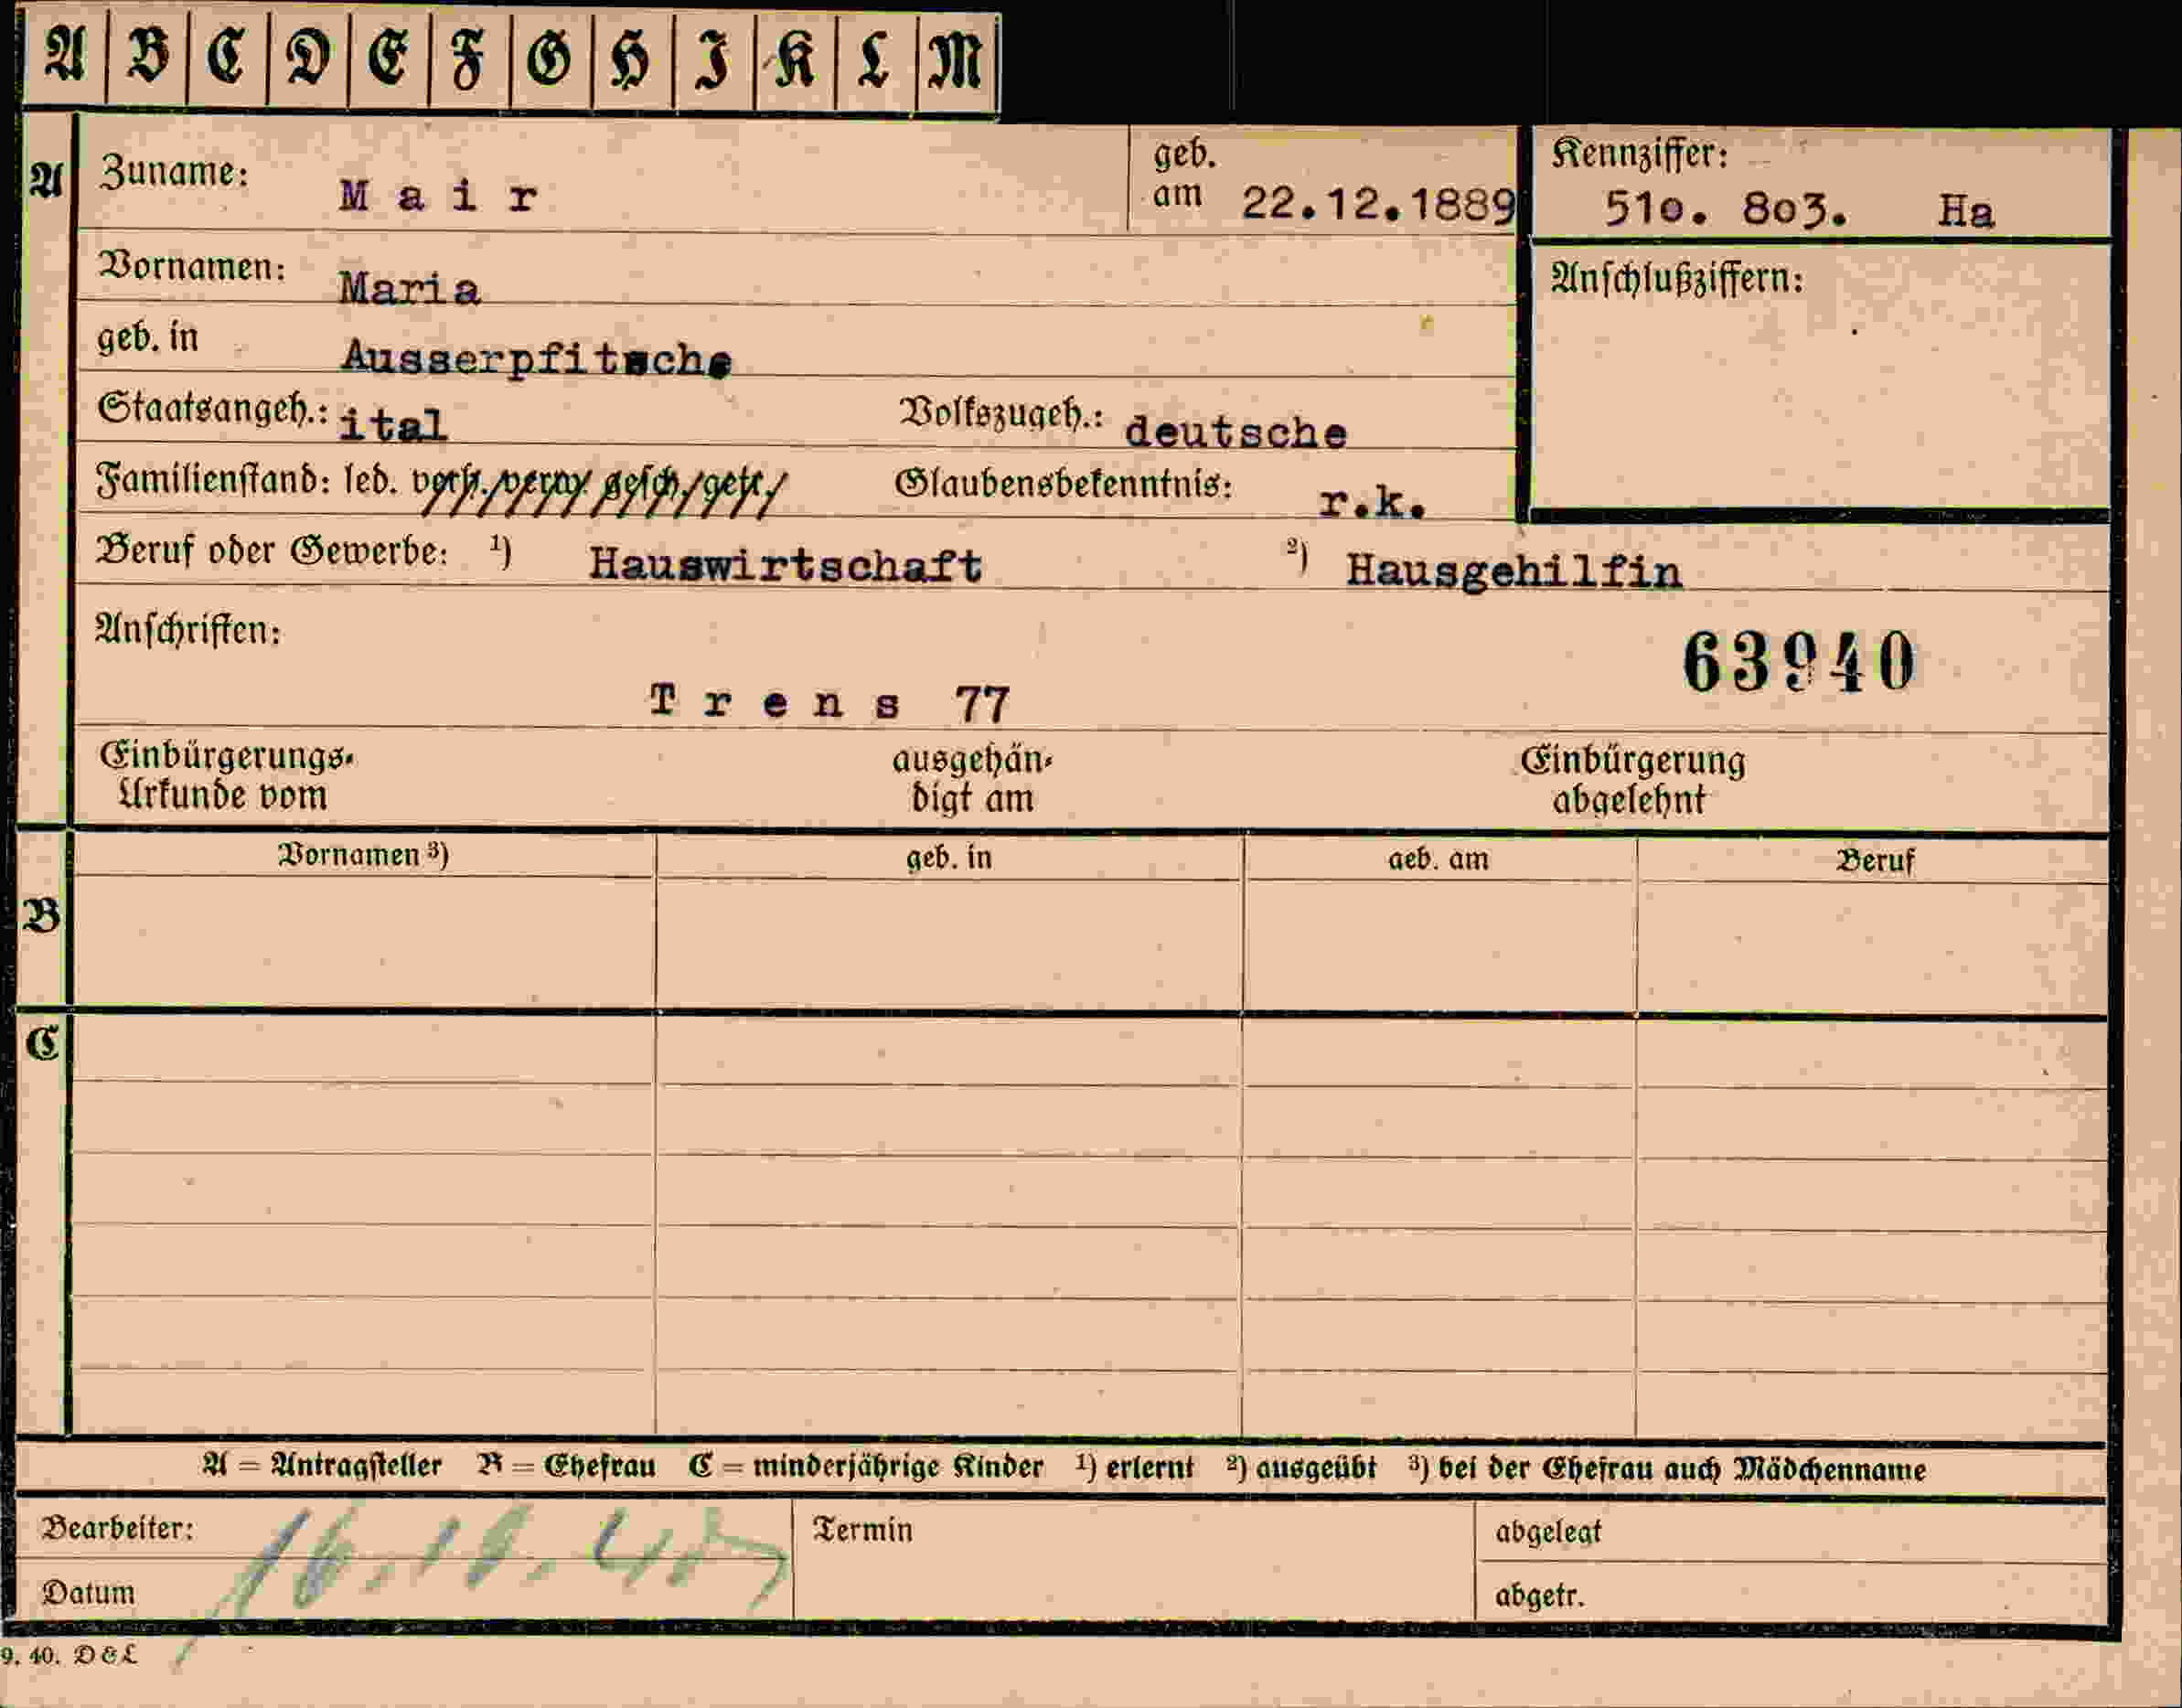 A B C D E F G H I K L M
A Zuname: Mair geb. am 22.12.1889 Kennziffer: 51o. 8o3. Ha
Vornamen: Maria Anschlußziffern:
geb. in Ausserpfitsche
Staatsangeh.: ital Volkszugeh.: deutsche
Familienstand: led. verh. verw. gesch. getr. Glaubensbekenntnis: r.k.
Beruf oder Gewerbe: ¹) Hauswirtschaft ²) Hausgehilfin
Anschriften: 63940
Trens 77
Einbürgerungs- ausgehän- Einbürgerung
Urkunde vom digt am abgelehnt
Vornamen ³) geb. in geb. am Beruf
B
C
A = Antragsteller B = Ehefrau C = minderjährige Kinder ¹) erlernt ²) ausgeübt ³) bei der Ehefrau auch Mädchenname
Bearbeiter: Termin abgelegt
Datum abgetr.
9. 40. D & L